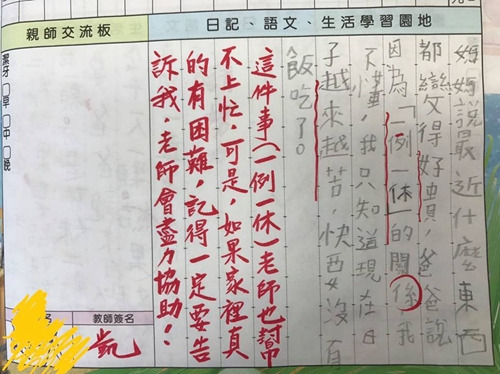 日記、語文、生活學習園地
媽媽說最近什麼東西
都變得好貴，爸爸說
因為「一例一休」的關係我
不懂，我只知道現在日
子越來越苦，快要沒有
飯吃了。
這件事(一例一休)老師也幫
不上忙，可是，如果家裡真
的有困難，記得一定要告
訴我，老師會盡力協助！
親師交流板
潔牙□早□中□晚
教師簽名
凱